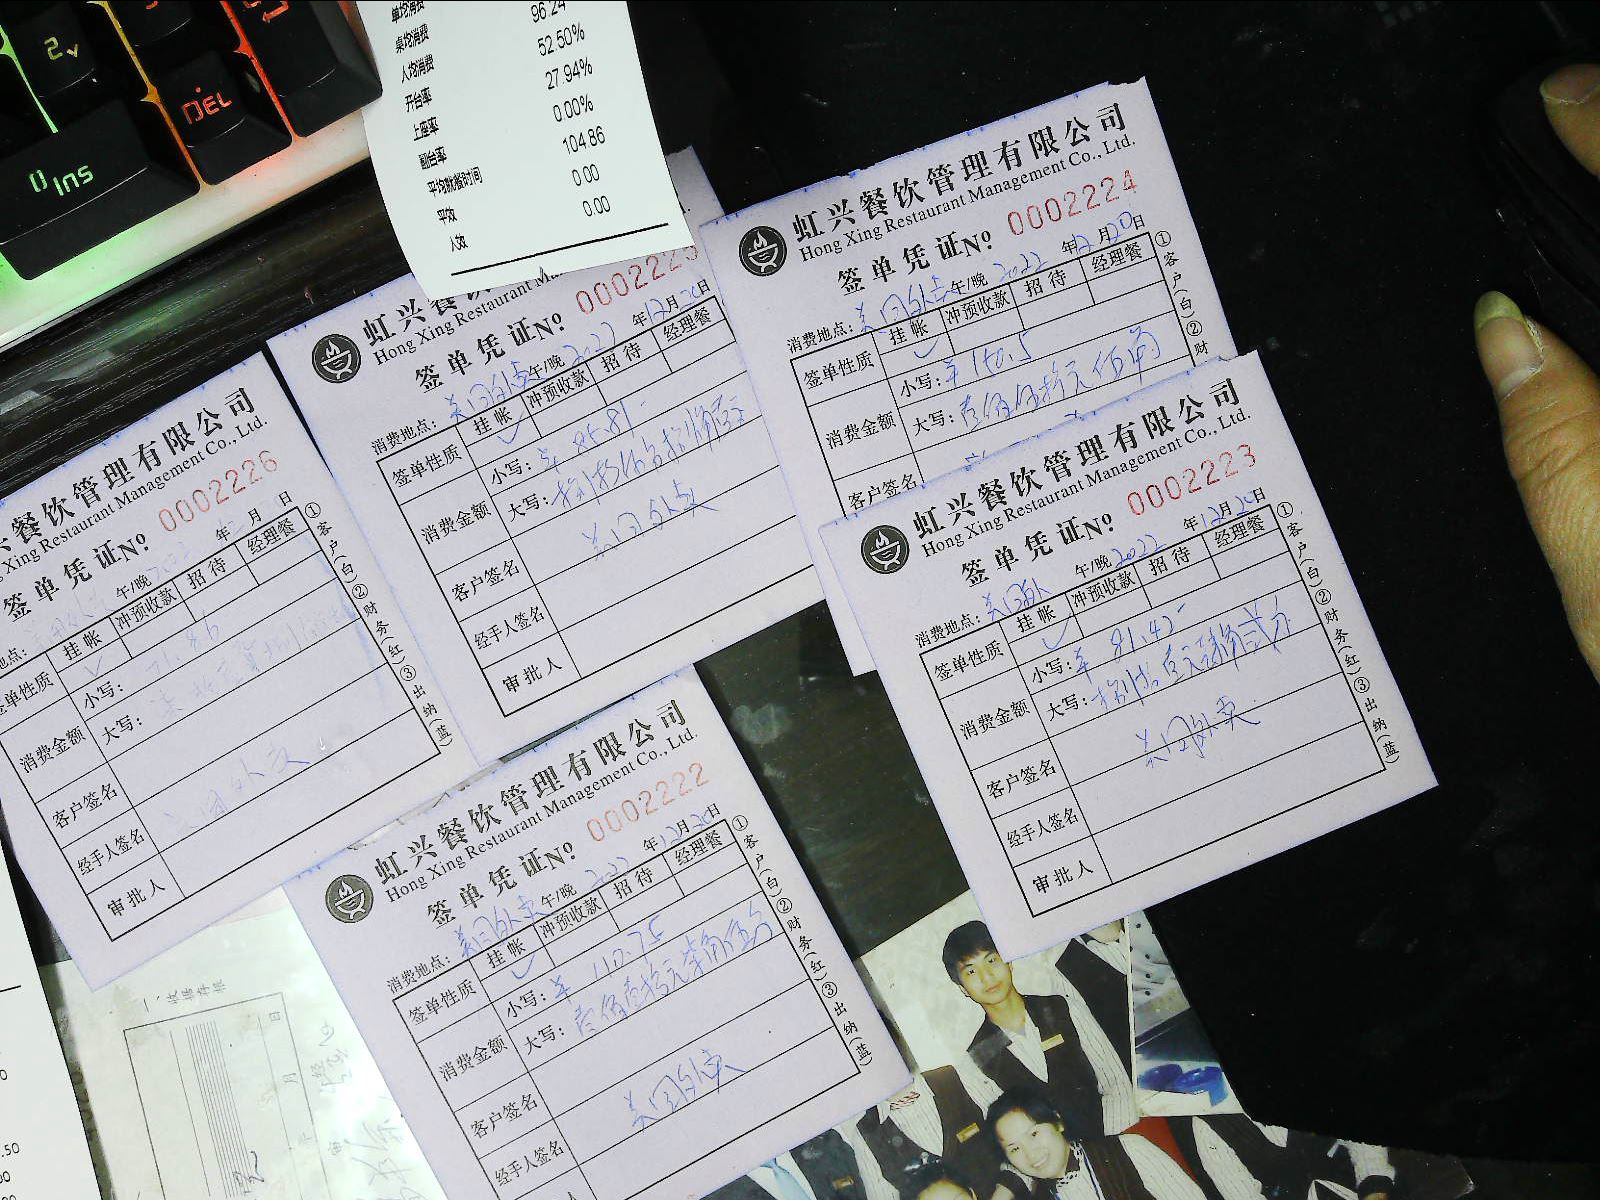 2
DEL
0 Ins
单均消费
96.24
桌均消费
52.50%
人均消费
27.94%
开台率
0.00%
上座率
104.86
翻台率
0.00
平均就餐时间
0.00
平效
人效
虹兴餐饮管理有限公司
Hong Xing Restaurant Management Co., Ltd.
签单凭证 No 0002224
消费地点: 美团外卖 午/晚 2022 年 12 月 20 日
签单性质 挂帐 冲预收款 招待 经理餐
消费金额 小写: ¥ 150.5
大写: 壹佰伍拾元伍角
客户签名
①客户(白)②财
虹兴餐饮
Hong Xing Restaurant Ma
签单凭证 No 0002225
消费地点: 美团外卖 午/晚 2022 年 12 月 20 日
签单性质 挂帐 冲预收款 招待 经理餐
消费金额 小写: ¥ 85.81
大写:
客户签名 美团外卖
经手人签名
审批人
兴餐饮管理有限公司
Xing Restaurant Management Co., Ltd.
签单凭证 No 0002226
地点: 午/晚 年 月 日
签单性质 挂帐 冲预收款 招待 经理餐
消费金额 小写: 71.86
大写:
客户签名 美团外卖
经手人签名
审批人
①客户(白)②财务(红)③出纳(蓝)
虹兴餐饮管理有限公司
Hong Xing Restaurant Management Co., Ltd.
签单凭证 No 0002223
消费地点: 美团外 午/晚 2022 年 12 月 20 日
签单性质 挂帐 冲预收款 招待 经理餐
消费金额 小写: ¥ 81.42
大写: 捌拾壹元肆角贰分
客户签名 美团外卖
经手人签名
审批人
①客户(白)②财务(红)③出纳(蓝)
虹兴餐饮管理有限公司
Hong Xing Restaurant Management Co., Ltd.
签单凭证 No 0002222
消费地点: 美团外卖 午/晚 2022 年 12 月 20 日
签单性质 挂帐 冲预收款 招待 经理餐
消费金额 小写: ¥ 110.75
大写: 壹佰壹拾元柒角伍分
客户签名 美团外卖
经手人签名
①客户(白)②财务(红)③出纳(蓝)
.50